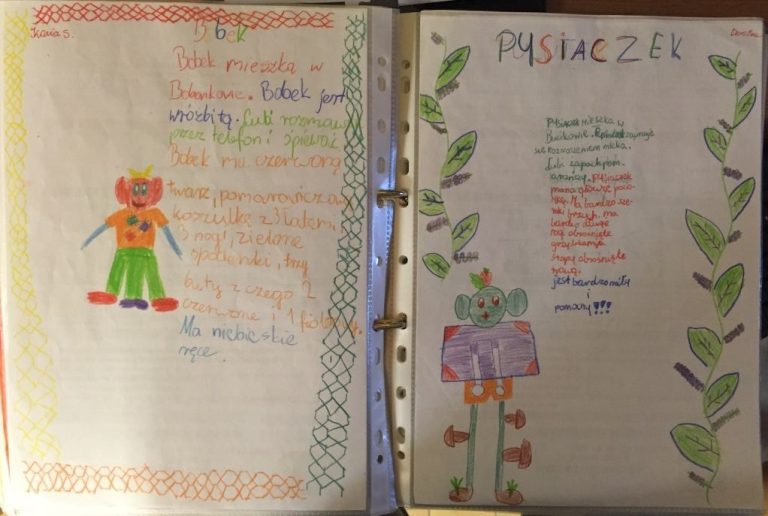 Kasia S.
Bobek
Bobek mieszka w
Bobonkowie. Bobek jest
wróżbitą. Lubi rozmaw
przez telefon i śpiewać.
Bobek ma czerwoną
twarz, pomarańczową
koszulkę z 3 łatami,
3 nogi, zielone
spodenki, trzy
buty z czego 2
czerwone i 1 fioletowy.
Ma niebieskie
ręce.
PYSIACZEK
Pysiaczek mieszka w
się roznoszeniem mleka.
Lubi zapach pom
arańczy. Pysiaczek
ma na głowie
Ma bardzo sze
roki brzuch, ma
bardzo długie
nogi obrośnięte
grzybkami a
stopy obrośnięte
trawą.
jest bardzo miły
i
pomocny!!!